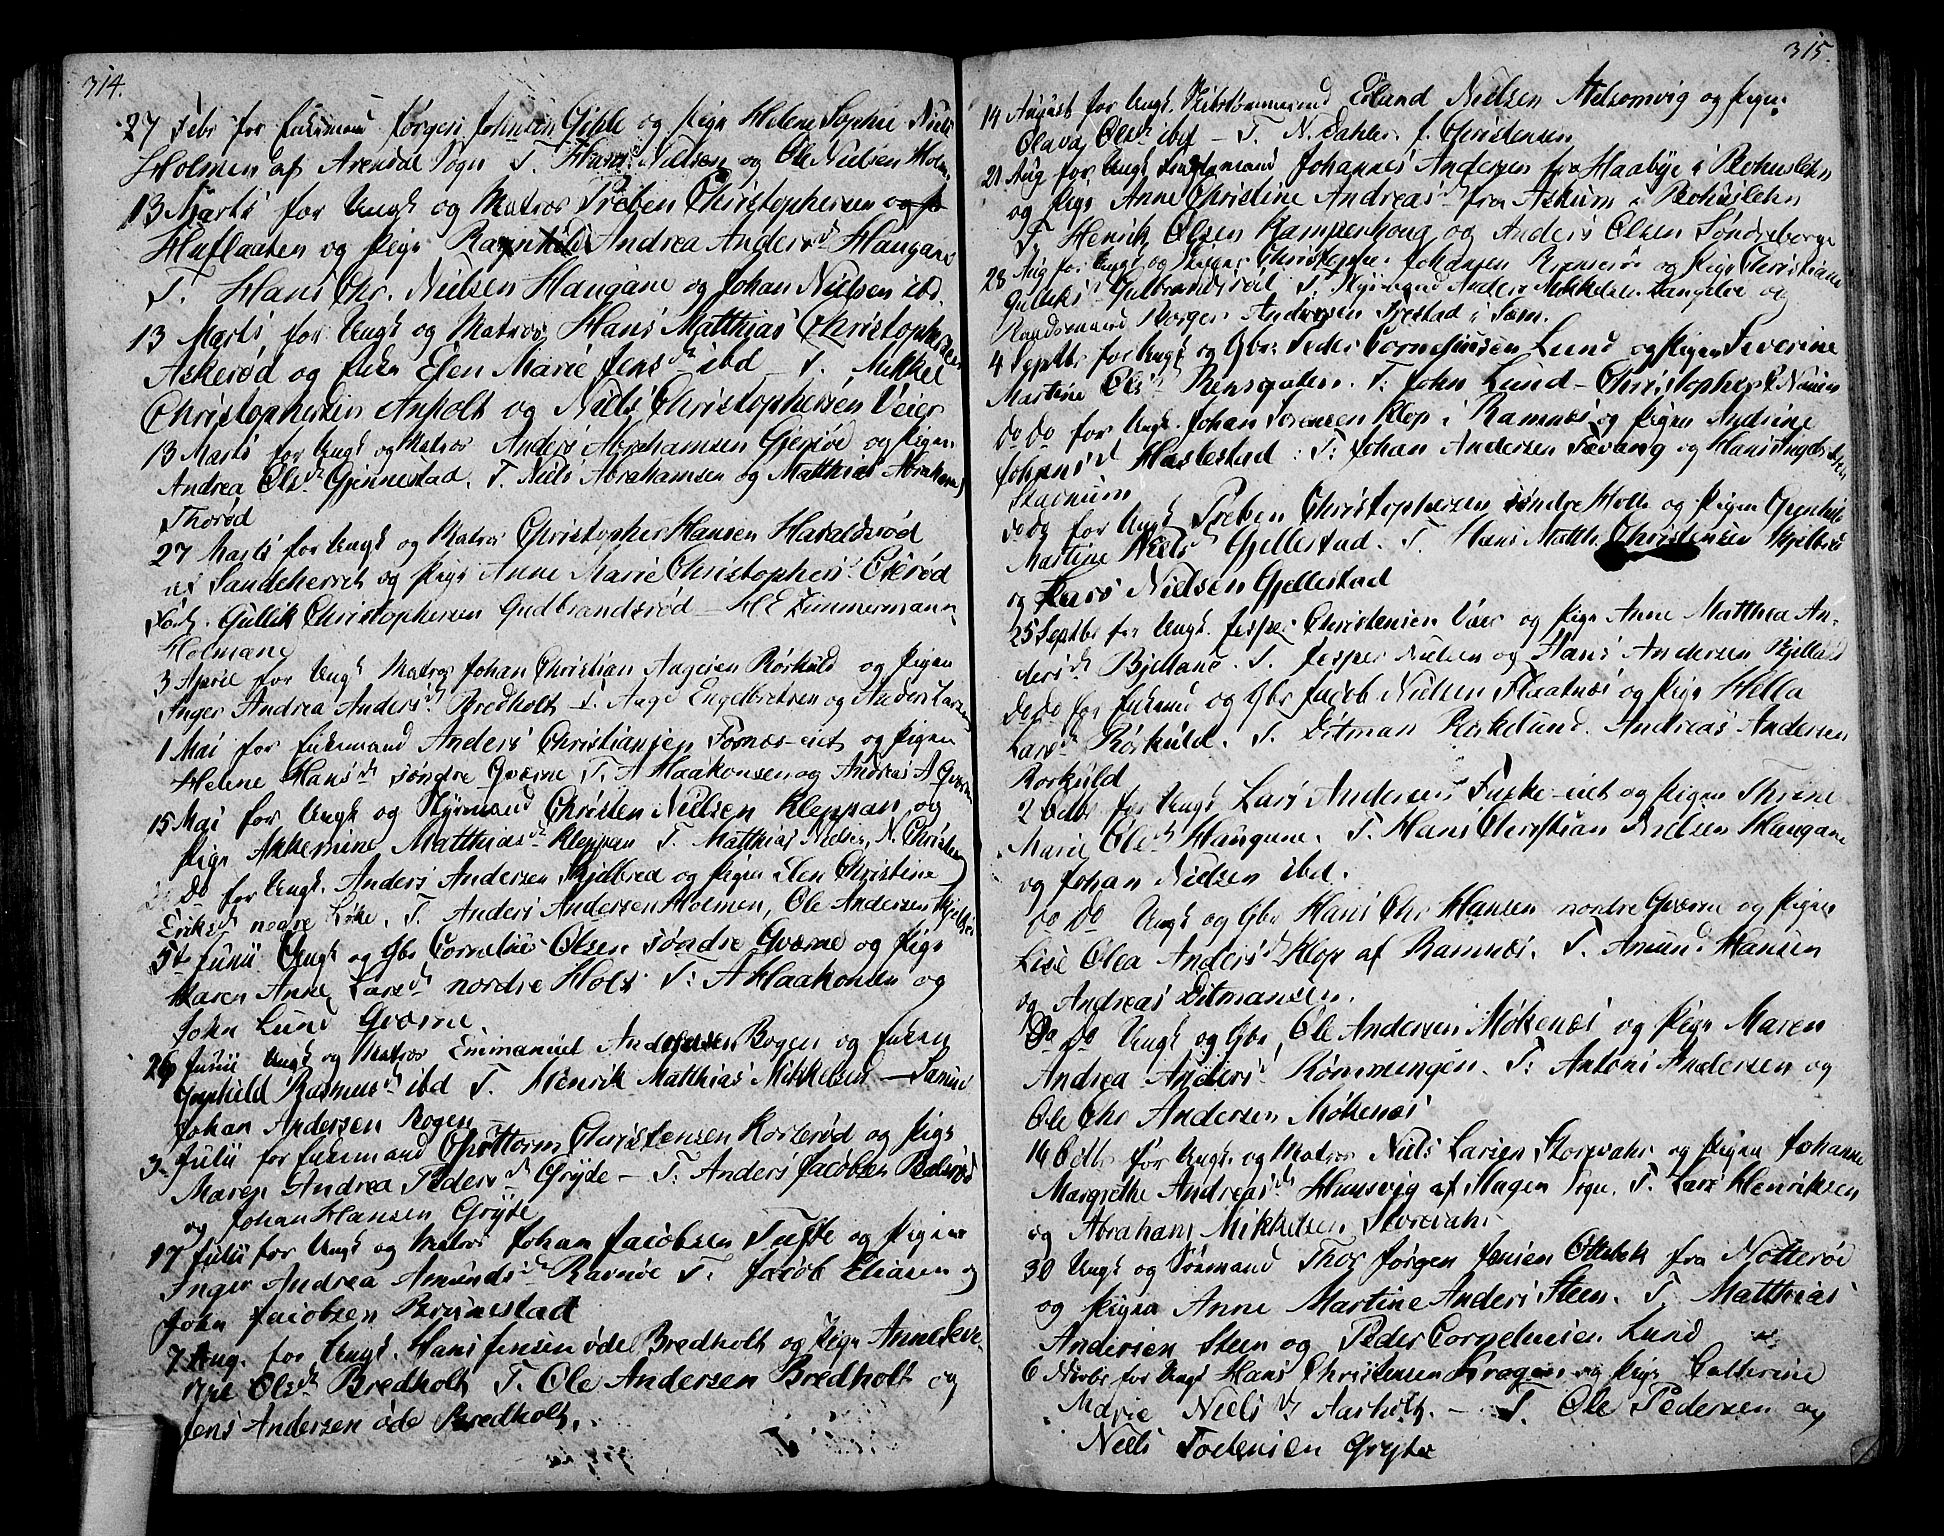 314.
27 Febr for Enkemand Jørgen Johnsen Gihle og Pige Helene Sophie Niels
Holmen af Arendal Sogn T. Hans Nielsen og Ole Nielsen Holm
13 Marts for Ungk og Matros Preben Christophersen
Huflaaten og Pige Andrea Andersd Haugane
T. Hans Chr. Nielsen Haugane og Johan Nielsen ibd.
13 Marts for Ungk og Matros Hans Matthias Christophersen
Askerød og Enken Elen Marie Jensd ibd – T. Mikkel
Christophersen Anholt og Niels Christophersen Veier
13 Marts for Ungk og Matros Anders Abrahamsen Gjerrøe og Pigen
Andrea Olsd Gjennestad. T. Niels Abrahamsen og Matthias Abrahams
Thorød
27 Marts for Ungk og Matros Christopher Hansen Haraldsrød
af Sandeherret og Pige Anne Marie Christophersd
Gullik Christophersen Gudbrandsrød – H E Zimmermann
Holmane
3 April for Ungk Matros Johan Christian Aagesen Rørkuld og Pigen
Inger Andrea Andersd Bredholt – T. Aage Engelbretsen og Anders Larsen
1 Mai for Enkemand Anders Christiansen Fornæs-eiet og Pigen
Helene Hansd søndre Qværne T. A Haakonsen og Andreas A Qværne
15 Mai for Ungk og Styrmand Christen Nielsen Kleppan og
Pige Akkemine Matthiasd Kleppan T. Matthias Nielsen, N. Christens
Do for Ungk. Anders Andersen Skjelbred og Pigen Elen Christine
Eriksd nedre Løke. T. Anders Andersen Holmen, Ole Andersen
5te Junii Ungk og Gbr Cornelius Olsen søndre Qværne og Pige
Karen Anne Larsd nordre Holt T: A Haakonsen og
John Lund Qværne.
26 Junii Ungk og Matros Emmanuel Andersen Bogen og Enken
Gunhild Rasmusd ibd T. Henrik Matthias Mikkelsen –
Johan Andersen Bogen
3 Julii for Enkemand Guttorm Christensen Korterød og Pige
Maren Andrea Pedersd Gryde – T: Anders Jacobsen
og Johan Hansen Gryde
17 Julii for Ungk og Matros Johan Jacobsen Tufte og Pigen
Inger Andrea Amundsd Ravnøe T. Jacob Eliasen og
John Jacobsen Brunestad
7 Aug. for Ungk. Hans Jensen øde Bredholt og Pige Anne Seve-
rine Olsd Bredholt T. Ole Andersen Bredholt og
Jens Andersen øde Bredholt.
315.
14 August for Ungk. Skibstømmermand Erland Nielsen Melsomvig og Pigen
Olava Olsd ibd – T. N. Dahler, J. Christensen
21 Aug for Ungk Johannes Andersen fra Haabye i Bohuslehn
og Pige Anne Christine Andreasd fra Askum i Bohuslehn
T. Henrik Olsen Kampenhoug og Anders Olsen Søndreborge
28 Aug for Ungk og Christopher Johansen og Pige Christiane
Gulliksd Gulbrandsrød T. Styrmand Anders Mikkelsen og
Andersen i Sem.
4 Septbr for Ungk og Gbr. Peder Corneliussen Lund og Pigen Severine
Martine Olsd T. John Lund – Christopher
do do for Ungk. Johan Sørensen Klop i Ramnæs og Pigen Andrine
Johansd Haslestad. T: Johan Andersen Tveang og Hans
Stadnum
do do for Ungk Preben Christophersen søndre Holt og Pigen Gunhild
Martine Nielsd Gjellestad. T. Hans Matth. Christensen Skjelbred
og Lars Nielsen Gjellestad
25 Septbr for Ungk. Jesper Christensen Vaer og Pige Anne Matthea An-
dersd Bjelland. T. Jesper Nielsen og Hans Andersen
do do for Enkemd og Gbr Jacob Nielsen Flaatnæs og Pige Hella
Larsd Rørkuld. T. Ditman Rørkelund. Andreas Andersen
Rørkuld
2 Octbr for Ungk Lars Andersen Furke-eiet og Pigen Thrine
Marie Olsd Haugane. T. Hans Christian Nielsen Haugane
og Johan Nielsen ibd.
do do Ungk og Gbr Hans Chr Hansen nordre Qværne og Pigen
Lise Olea Andersd Klop af Ramnæs. T. Amund Hansen
og Andreas Ditmansen.
Do Do Ungk og Gbr. Ole Andersen Møkenæs og Pige Maren
Andrea Andersd Rømmingen. T. Anton Andersen og
Ole Chr Andersen Møkenæs
16 Octbr for Ungk og Matros Niels Larsen Storevahr og Pigen Johanne
Margrethe Andreasd Hunsvig af Slagen Sogn. T. Lars Henriksen
og Abraham Mikkelsen Storevahr
30 Ungk og Sømand Thor Jørgen Jensen Oltebek fra Nøtterøe
og Pigen Anne Martine Anders Steen. T. Matthias
Andersen Steen og Peder Corneliusen Lund
6 Novbr for Ungk Hans Christensen Krogen og Pige Catherine
Marie Nielsd Aasholt. – T. Ole Pedersen og
Niels Torstensen Gryte